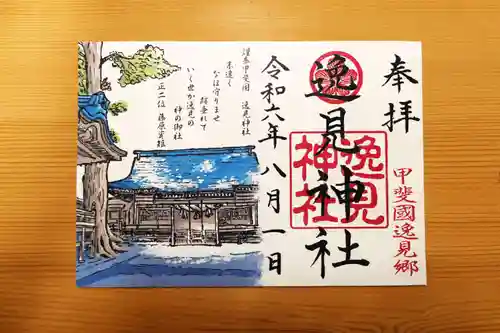 奉拝
甲斐國逸見郷
逸見神社
逸見
神社
令和六年八月一日
謹奉甲斐国 逸見神社
末遠く
なほ守りませ
跡垂れて
いく世か逸見の
神の御社
正二位 藤原實維